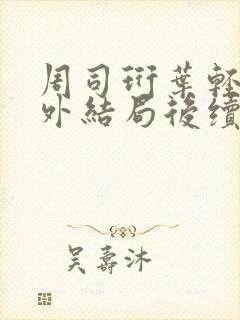 周司珩葉輕
外結局後續
吳壽沐